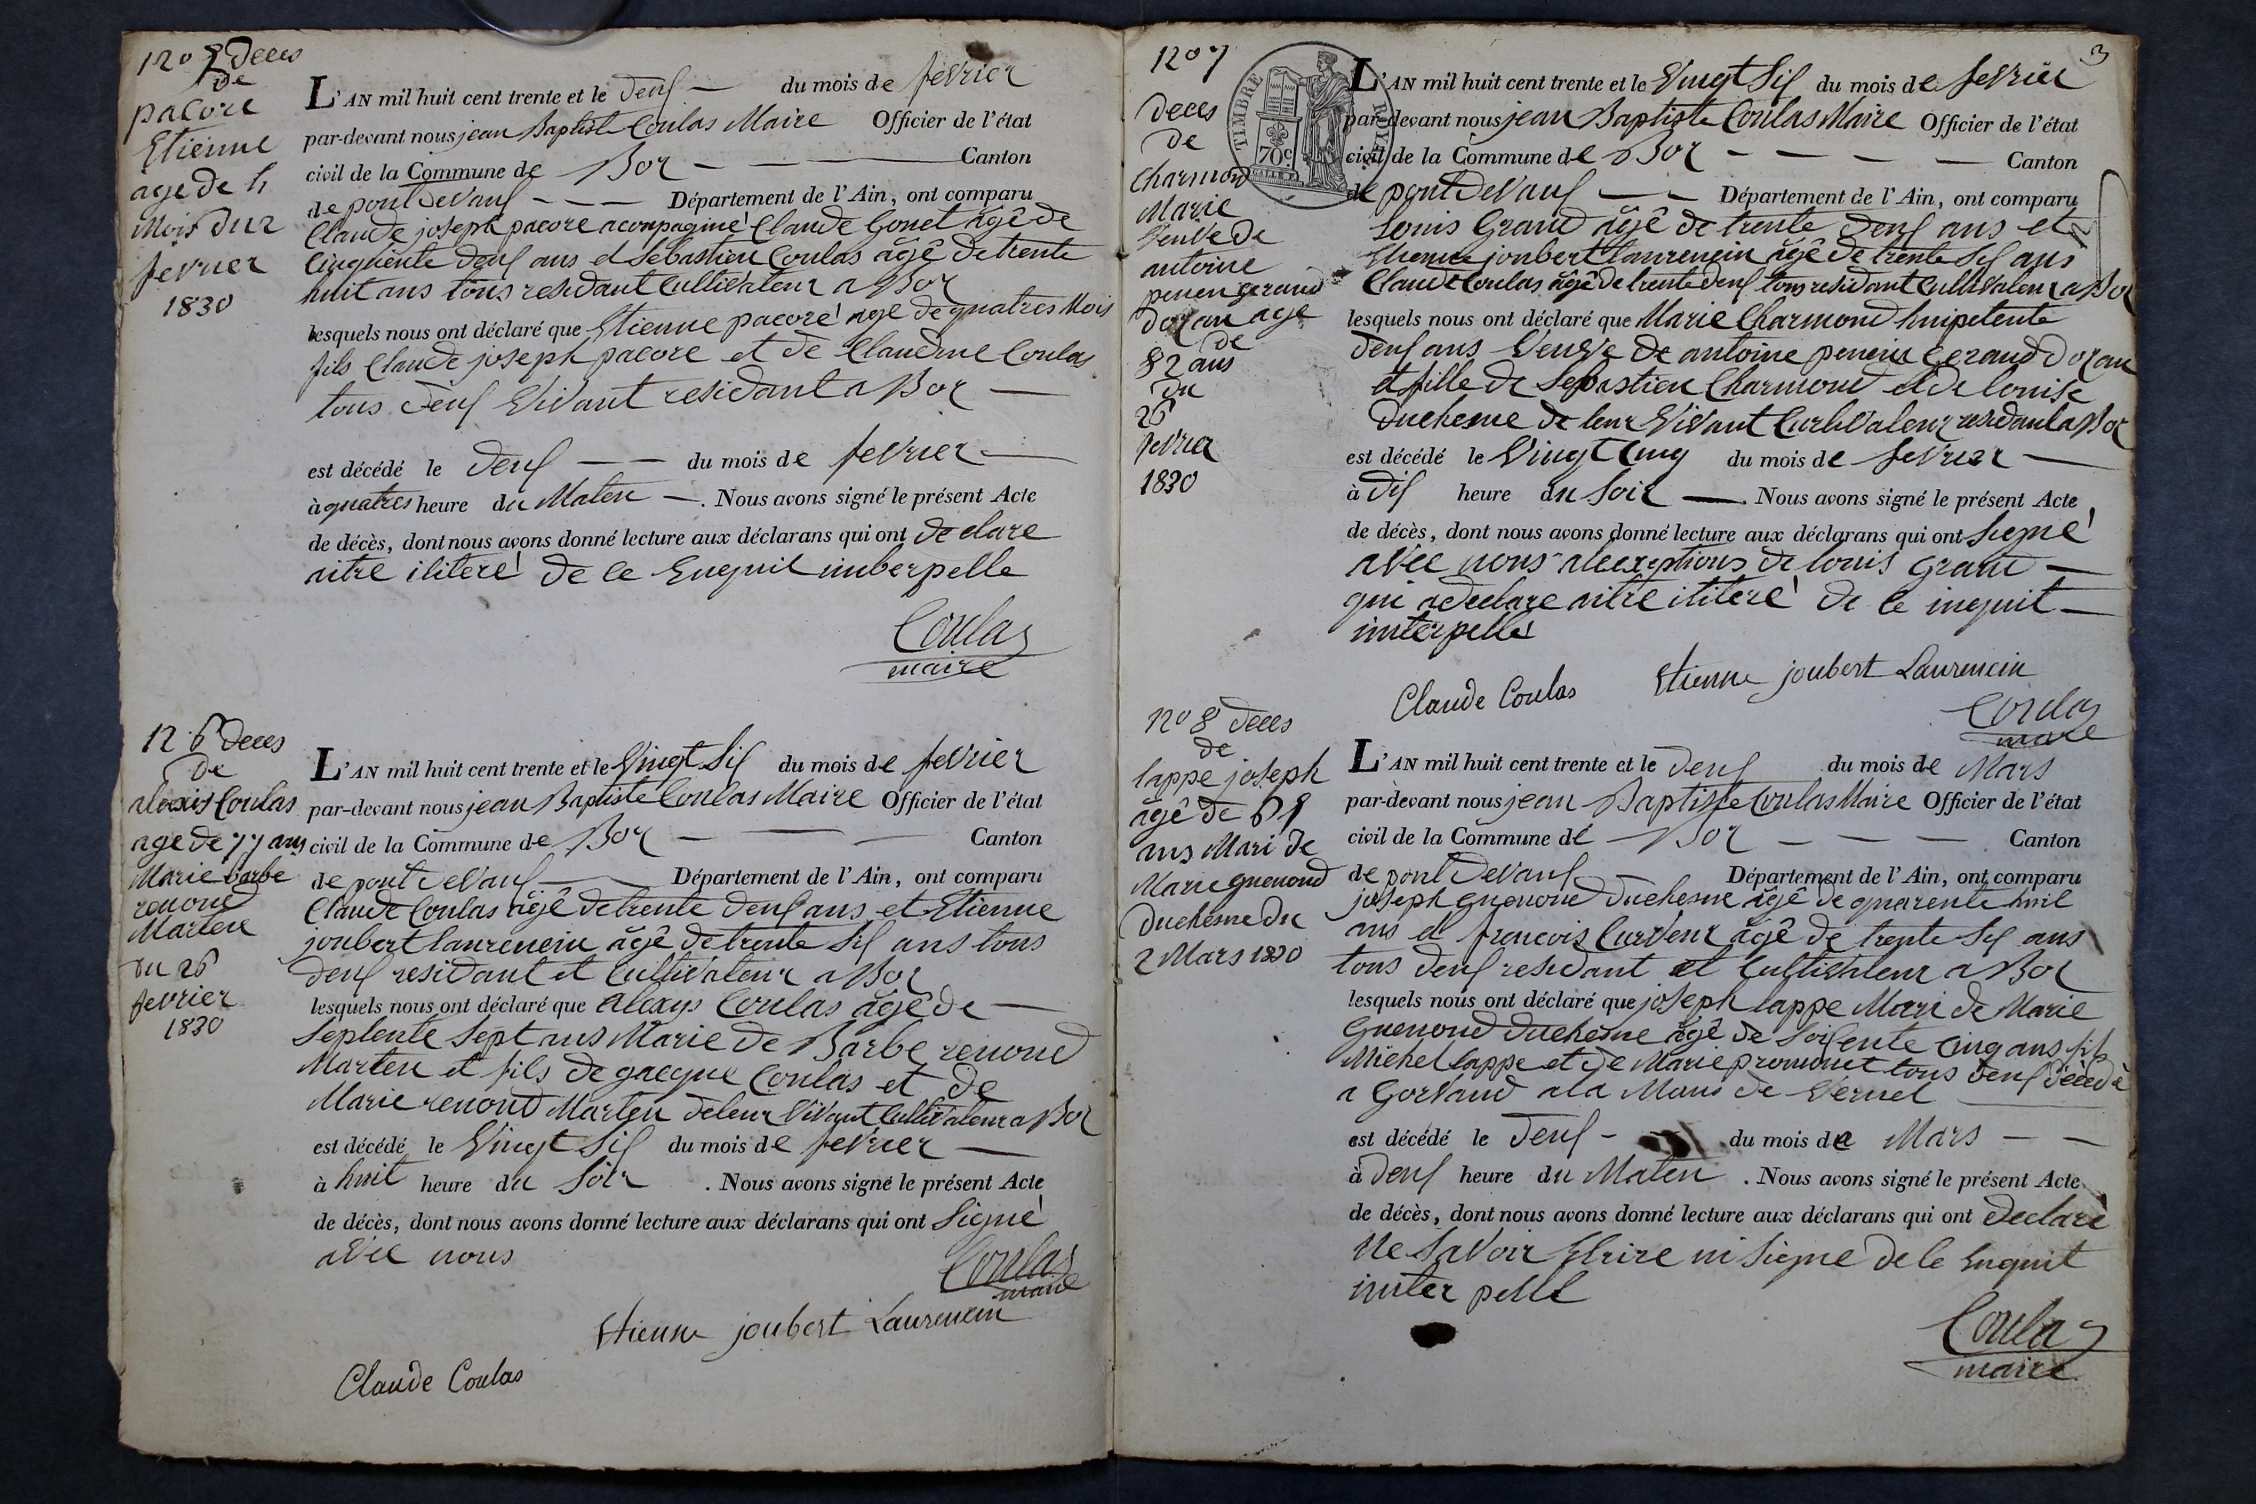 No 5 deces
de
pacore
Etienne
age de 4
Mois du 2
fevrier
1830
L'AN mil huit cent trente et le deux — du mois de fevrier
par-devant nous jean Baptiste Coulas Maire Officier de l'état
civil de la Commune de Boz — — — Canton
de pont devaux — — — Département de l'Ain, ont comparu
Claude joseph pacore acompagine Claude Gonet agé de
Cinquente deux ans et Sebastien Coulas agé de trente
huit ans tous residant Cultivateur a Boz
lesquels nous ont déclaré que Etienne pacoré age de quatres Mois
fils Claude joseph pacore et de Claudine Coulas
tous deux Vivant residant a Boz —
est décédé le deux — — du mois de fevrier —
à quatres heure du Maten —. Nous avons signé le présent Acte
de décès, dont nous avons donné lecture aux déclarans qui ont declare
aitre ilitere de ce Enquit imberpelle
Coulas
maire
No 6 deces
de
alexis Coulas
age de 77 ans
Marie barbe
renoud
Marten
du 26
fevrier
1830
L'AN mil huit cent trente et le Vingt Six du mois de fevrier
par-devant nous jean Baptiste Coulas Maire Officier de l'état
civil de la Commune de Boz — — — Canton
de pont devaux — Département de l'Ain, ont comparu
Claude Coulas agé de trente deux ans et Etienne
joubert laurencin agé de trente Six ans tous
deux residant et Cultivateur a Boz
lesquels nous ont déclaré que alexys Coulas agé de —
Septente Sept ans Marie de Barbe renoud
Marten et fils de gacque Coulas et de
Marie renoud Marten de leur Vivant Cultivateur a Boz
est décédé le Vingt Six du mois de fevrier —
à huit heure du Soir . Nous avons signé le présent Acte
de décès, dont nous avons donné lecture aux déclarans qui ont Signé
avec nous
Coulas
maire
Etienne joubert Laurencin
Claude Coulas
3
No 7
deces
de
Charmond
Marie
Veuve de
antoine
penen geraud
dozan age
de
82 ans
du
26
fevrier
1830
TIMBRE ROYAL
70c
L'AN mil huit cent trente et le Vingt Six du mois de fevrier
par-devant nous jean Baptiste Coulas Maire Officier de l'état
civil de la Commune de Boz — — — — Canton
de pont devaux — — Département de l'Ain, ont comparu
Louis Grand agé de trente deux ans et
Etienne joubert laurencin agé de trente Six ans
Claude Coulas agé de trente deux tous residant Cultivateur a Boz
lesquels nous ont déclaré que Marie Charmond huipetente
deux ans Veuve de antoine penein geraud dozan
et fille de Sebastien Charmond et de louise
duchesne de leur Vivant Curlivateur residant a Boz
est décédé le Vingt Cinq du mois de fevrier —
à dix heure du Soir —. Nous avons signé le présent Acte
de décès, dont nous avons donné lecture aux déclarans qui ont Signé
avec nous alexeptions de louis grand —
qui a declare aitre ilitere de ce inquit —
imterpellé
Claude Coulas Etienne joubert Laurencin
Coulas
maire
No 8 deces
de
lappe joseph
âgé de 65
ans Mari de
Marie guenoud
duchesne du
2 Mars 1830
L'AN mil huit cent trente et le deux du mois de Mars
par-devant nous jean Baptiste Coulas Maire Officier de l'état
civil de la Commune de Boz — — — Canton
de pont devaux — Département de l'Ain, ont comparu
joseph guenoud duchesne agé de quarente huit
ans et francois Curveur agé de trente Six ans
tous deux residant et Cultivateur a Boz
lesquels nous ont déclaré que joseph lappe Mari de Marie
Guenoud duchesne agé de Soixente Cinq ans fils
Michel lappe et de Marie promonet tous deux décédé
a Gorvaud a la Mans de Vernet —
est décédé le deux — du mois de Mars — —
à deux heure du Maten . Nous avons signé le présent Acte
de décès, dont nous avons donné lecture aux déclarans qui ont declaré
Ne Savoir Ekrire ni Signe de le Enquit
imter pelle
Coulas
maire